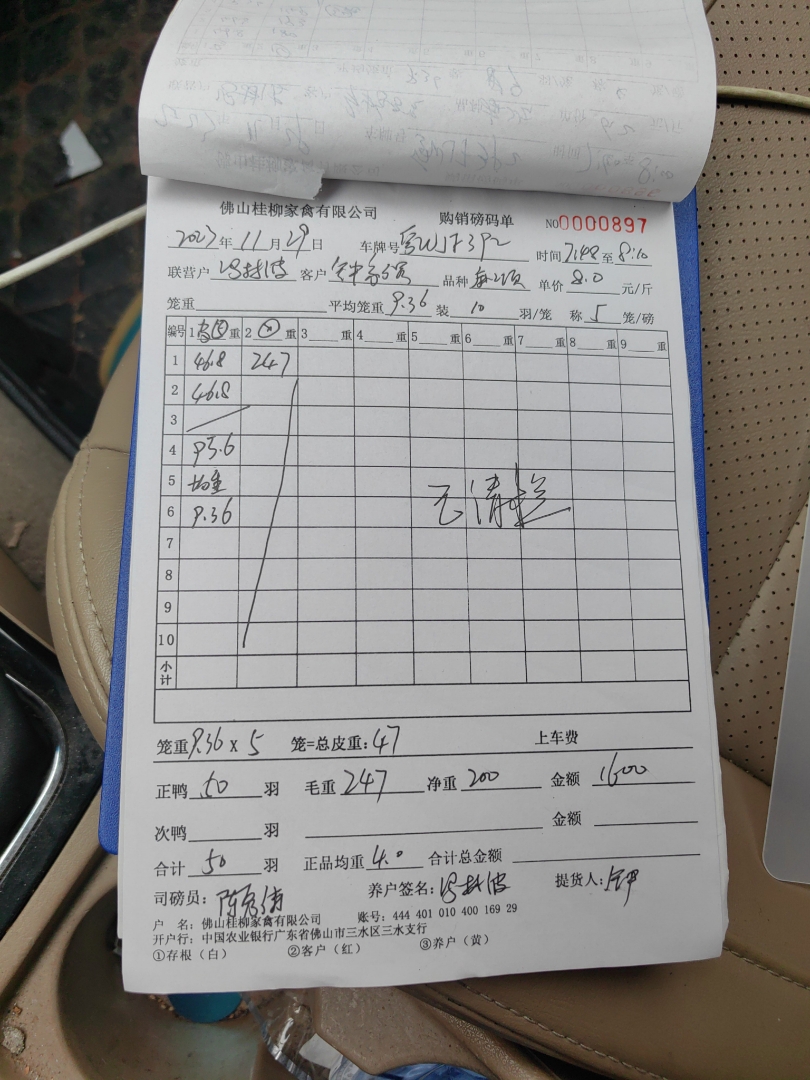 佛山桂柳家禽有限公司 购销磅码单 NO0000897
2023年11月29日 车牌号 时间7:48至8:10
联营户 客户 品种 单价8.0元/斤
笼重 平均笼重9.36 装10羽/笼 称5笼/磅
编号 1 重 2 重 3 重 4 重 5 重 6 重 7 重 8 重 9 重
1 46.8 247
2 46.8
3
4 93.6
5 均重
6 9.36
7
8
9
10
小计
笼重9.36 x 5 笼=总皮重:47 上车费
正鸭50羽 毛重247 净重200 金额1600
次鸭 羽 金额
合计50羽 正品均重4.0 合计总金额
司磅员: 养户签名: 提货人:
户 名: 佛山桂柳家禽有限公司 账号: 444 401 010 400 169 29
开户行: 中国农业银行广东省佛山市三水区三水支行
①存根(白) ②客户(红) ③养户(黄)